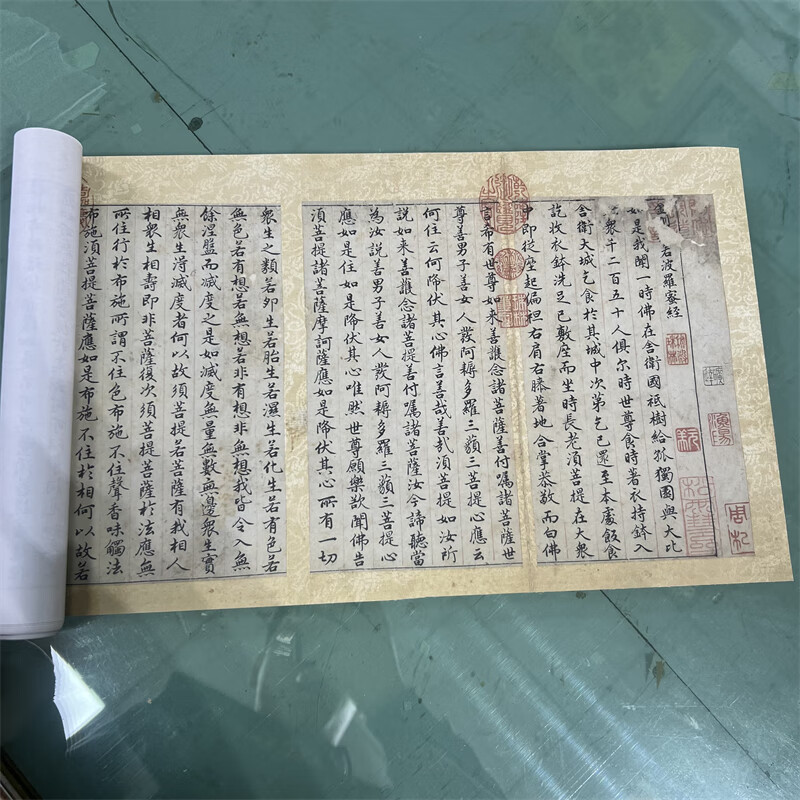 若波羅蜜經
如是我聞一時佛在舍衛國祇樹給孤獨園與大比
衆千二百五十人俱尔時世尊食時著衣持鉢入
舍衛大城乞食於其城中次第乞已還至本處飯食
訖收衣鉢洗足已敷座而坐時長老湏菩提在大衆
中即從座起偏袒右肩右膝著地合掌恭敬而白佛
言希有世尊如来善護念諸菩薩善付嘱諸菩薩世
尊善男子善女人發阿耨多羅三藐三菩提心應云
何住云何降伏其心佛言善哉善哉湏菩提如汝所
說如来善護念諸菩提善付嘱諸菩薩汝今諦聽當
為汝說善男子善女人發阿耨多羅三藐三菩提心
應如是住如是降伏其心唯然世尊願樂欲聞佛告
湏菩提諸菩薩摩訶薩應如是降伏其心所有一切
衆生之類若卵生若胎生若濕生若化生若有色若
無色若有想若無想若非有想非無想我皆令入無
餘涅盤而滅度之是如滅度無量無數無邊衆生實
無衆生淂滅度者何以故湏菩提若菩薩有我相人
相衆生相壽即非菩薩復次湏菩提菩薩於法應無
所住行於布施所謂不住色布施不住聲香味觸法
布施湏菩提菩薩應如是布施不住於相何以故若